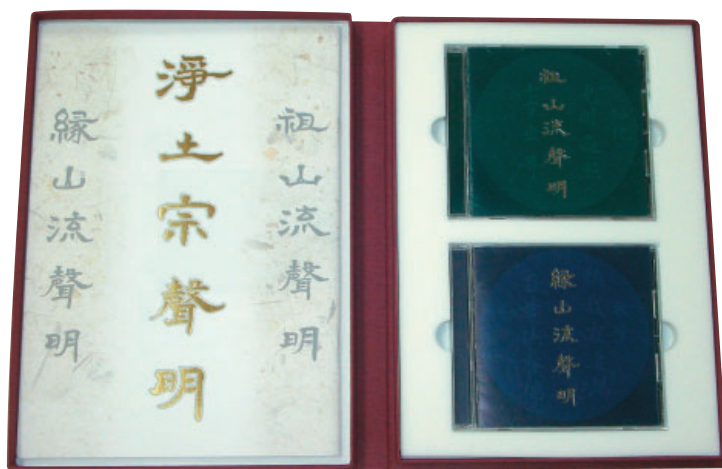 祖山流聲明
淨土宗聲明
縁山流聲明
祖山流聲明
縁山流聲明